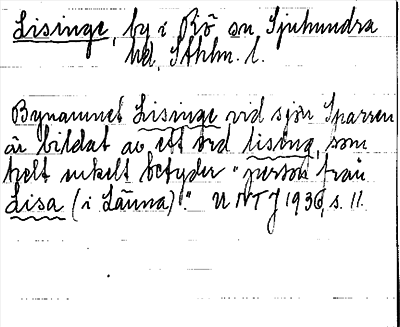 Lisinge, by i Riö sn Sjuhundra
hd, Sthlm. l.
Bynamnet Lisinge vid sjön Sparren
är bildat av ett ord lising, som
helt enkelt betyder "person från
Lisa (i Länna)". UNTJ 1936, s. 11.